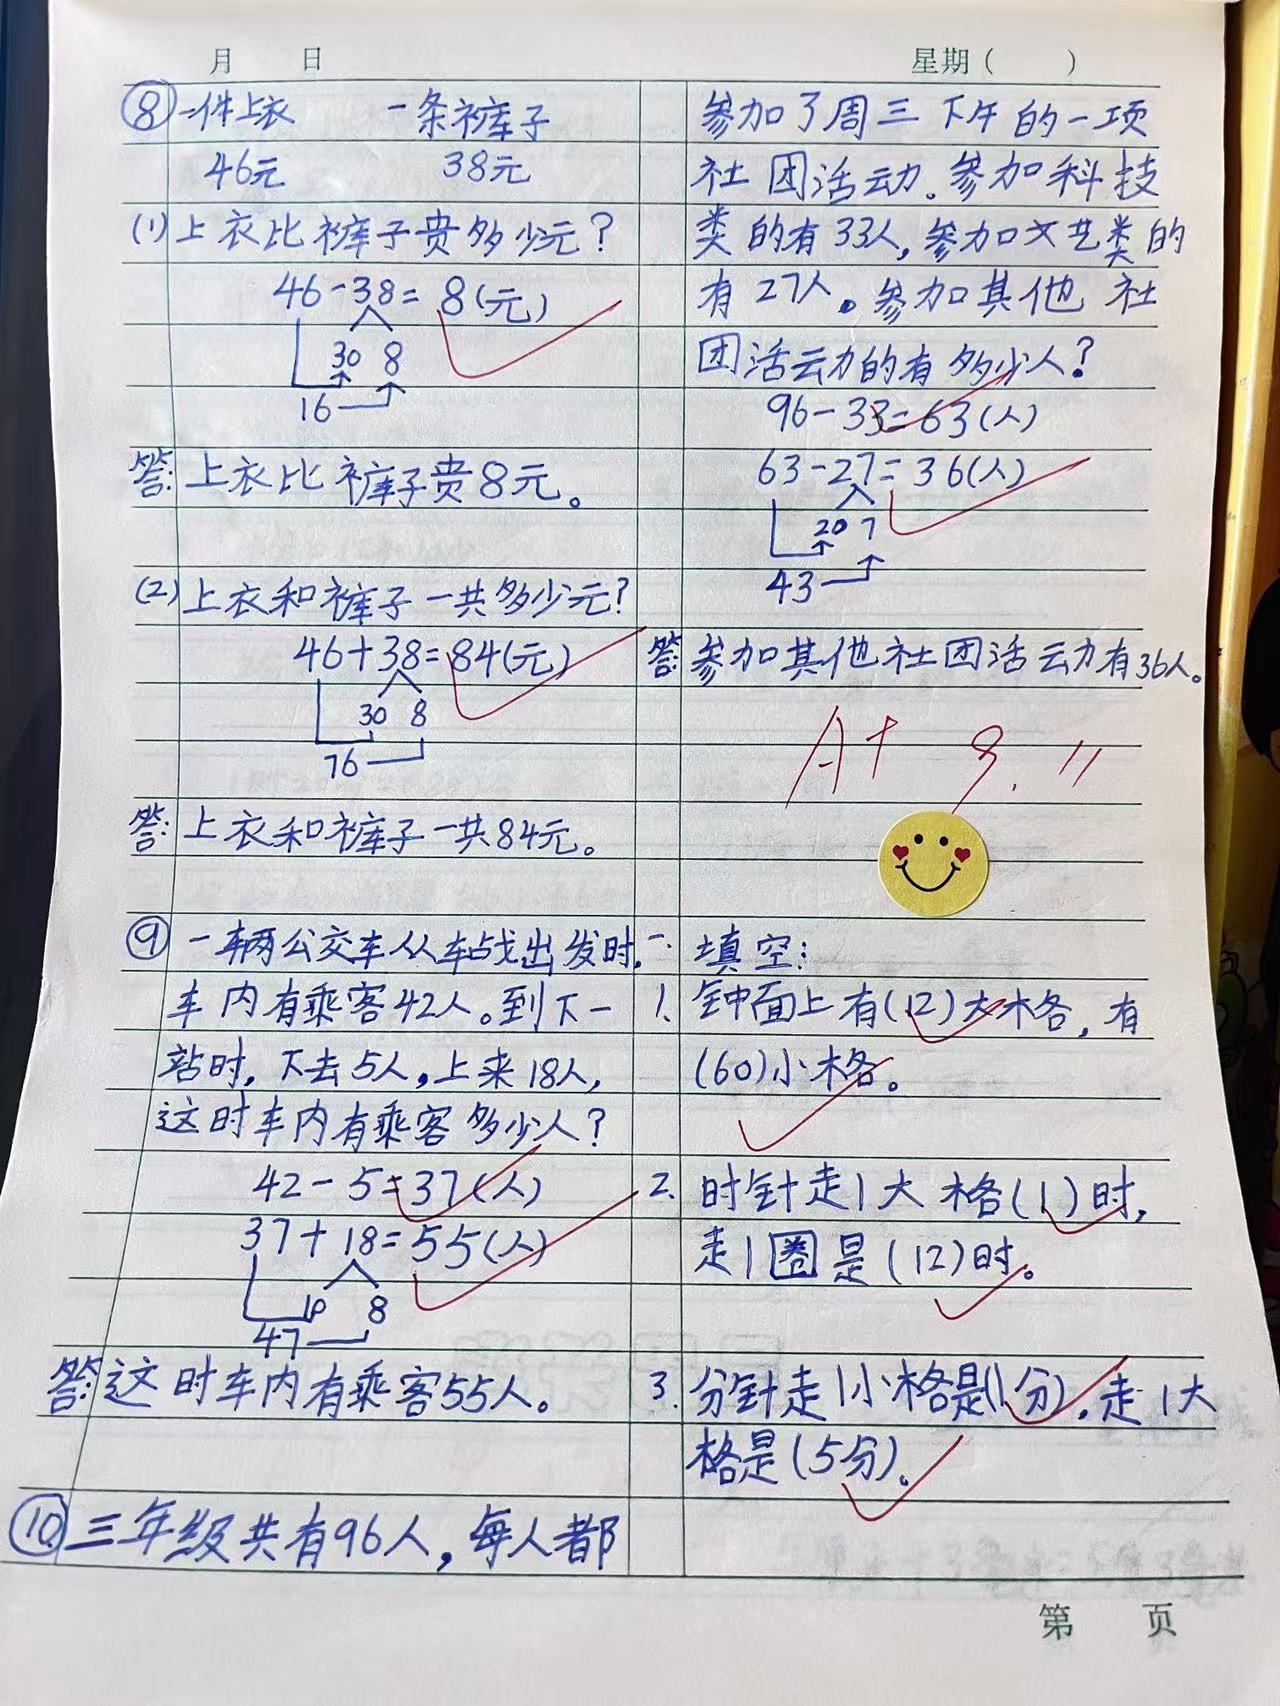 月 日 星期( )
⑧ 一件上衣 一条裤子
46元 38元
(1)上衣比裤子贵多少元?
46-38=8(元)
30 8
16
答:上衣比裤子贵8元。
(2)上衣和裤子一共多少元?
46+38=84(元)
30 8
76
答:上衣和裤子一共84元。
⑨ 一辆公交车从车站出发时,
车内有乘客42人。到下一
站时,下去5人,上来18人,
这时车内有乘客多少人?
42-5=37(人)
37+18=55(人)
10 8
47
答:这时车内有乘客55人。
⑩ 三年级共有96人,每人都
参加了周三下午的一项
社团活动。参加科技
类的有33人,参加文艺类的
有27人。参加其他社
团活动的有多少人?
96-33=63(人)
63-27=36(人)
20 7
43
答:参加其他社团活动有36人。
A+ 9.11
一. 填空:
1. 钟面上有(12)大格,有
(60)小格。
2. 时针走1大格(1)时,
走1圈是(12)时。
3. 分针走1小格是(1分),走1大
格是(5分)。
第 页